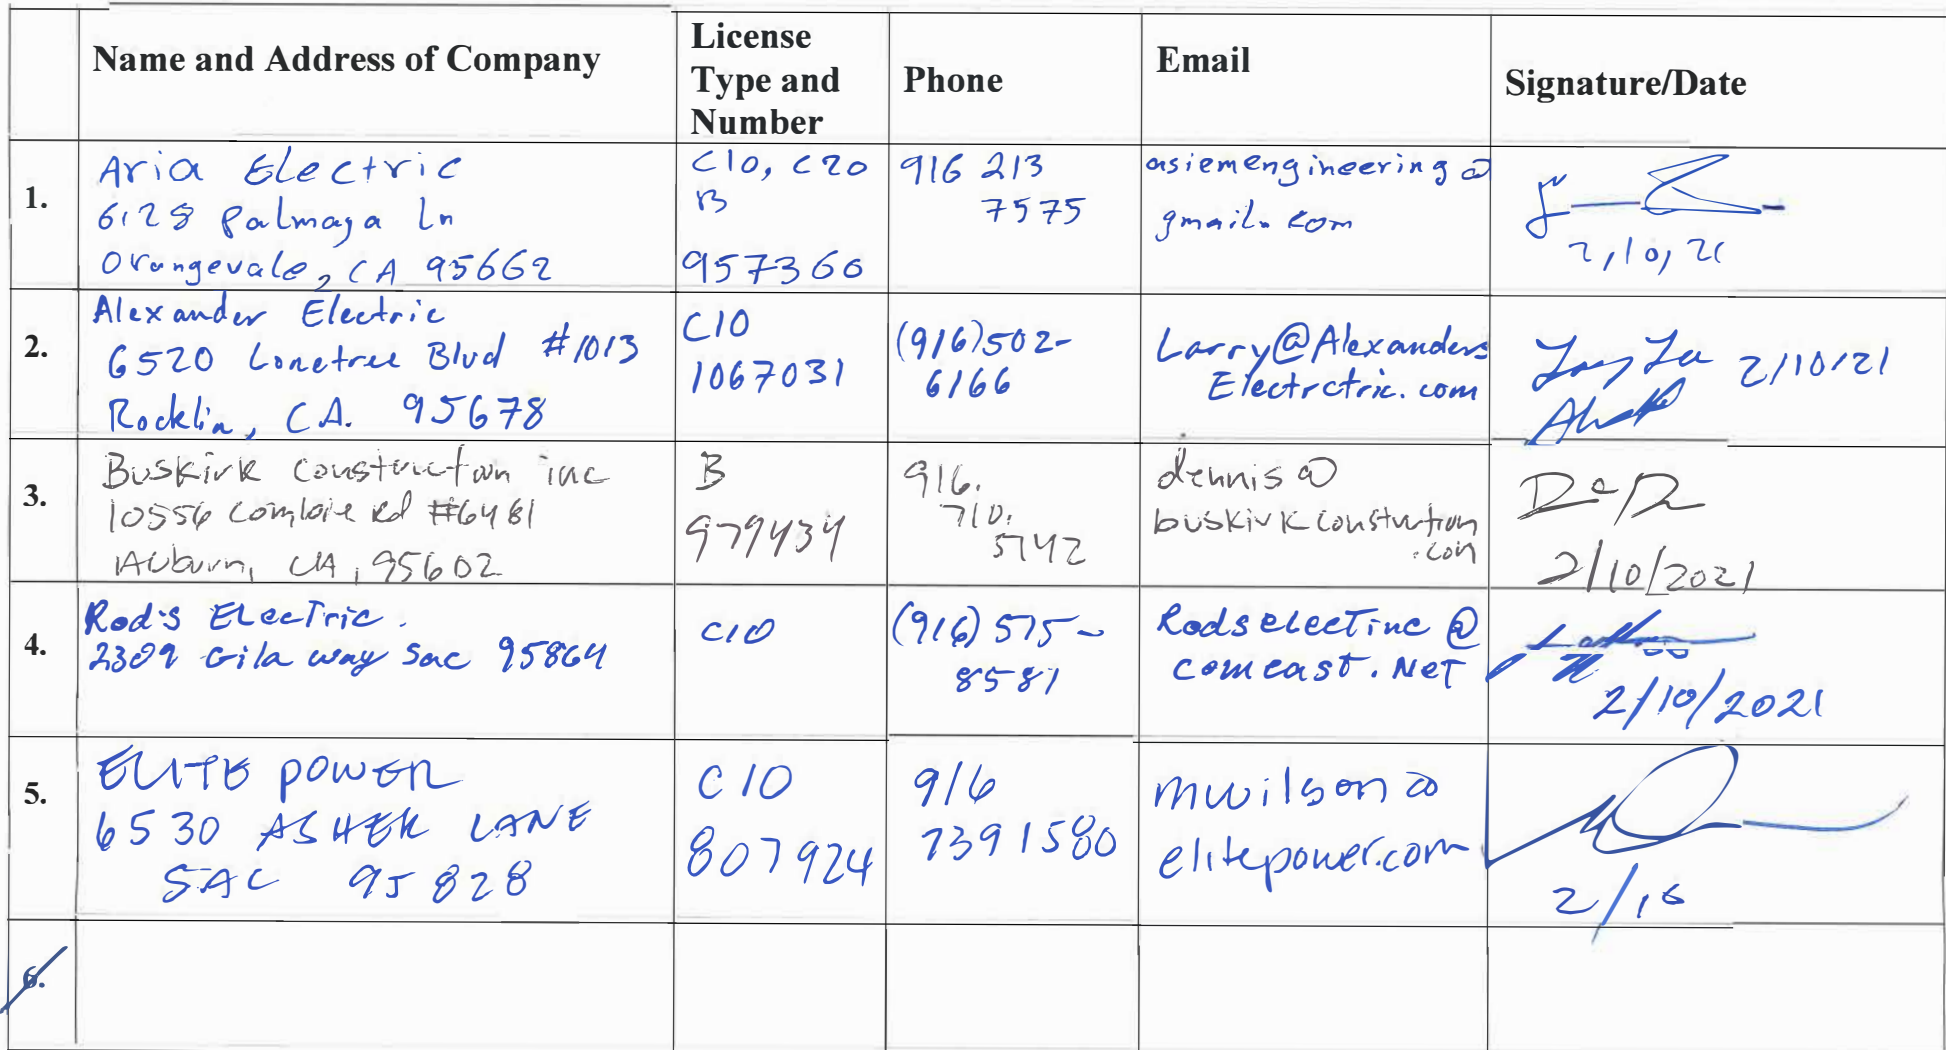 Name and Address of Company
License
Type and
Number
Phone
Email
Signature/Date
1.
Aria Electric
6128 Palmaya Ln
Orangevale, CA 95662
C10, C20
B
957360
916 213
7575
asiemengineering@
gmail.com
2,10,21
2.
Alexander Electric
6520 Lonetree Blvd #1013
Rocklin, CA. 95678
C10
1067031
(916)502-
6166
Larry@Alexanders
Electrctric.com
2/10/21
3.
Buskirk Construction inc
10556 Combie Rd #6481
Auburn, CA, 95602
B
979434
916.
710.
5142
dennis@
buskirkconstruction
.com
2/10/2021
4.
Rod's Electric.
2309 Gila way Sac 95864
C10
(916) 575-
8581
Rodselectinc@
comcast.Net
2/10/2021
5.
ELITE POWER
6530 ASHER LANE
SAC 95828
C10
807924
916
7391580
mwilson@
elitepower.com
2/10
6.